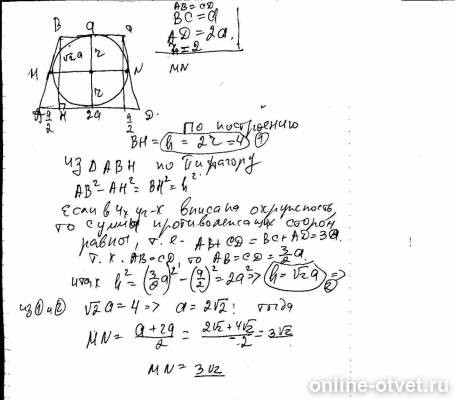 AB=CD
BC=a
AD=2a
r=2
MN
B a C
√2a r
M N
r
A a/2 H 2a a/2 D.
По построению
BH= h = 2r =4 ①
из ΔABH по Пифагору
AB²-AH²=BH²=h².
Если в 4х уг-к вписана окружность
то суммы противолежащих сторон
равны, т.е. AB+CD=BC+AD=3a.
т.к. AB=CD, то AB=CD=3/2 a.
итак h²=(3/2 a)²-(a/2)²=2a²=> h=√2a =>
②
из ① и ② √2a=4=> a=2√2! тогда
MN= a+2a/2 = 2√2+4√2/2 = 3√2
MN = 3√2
online-otvet.ru